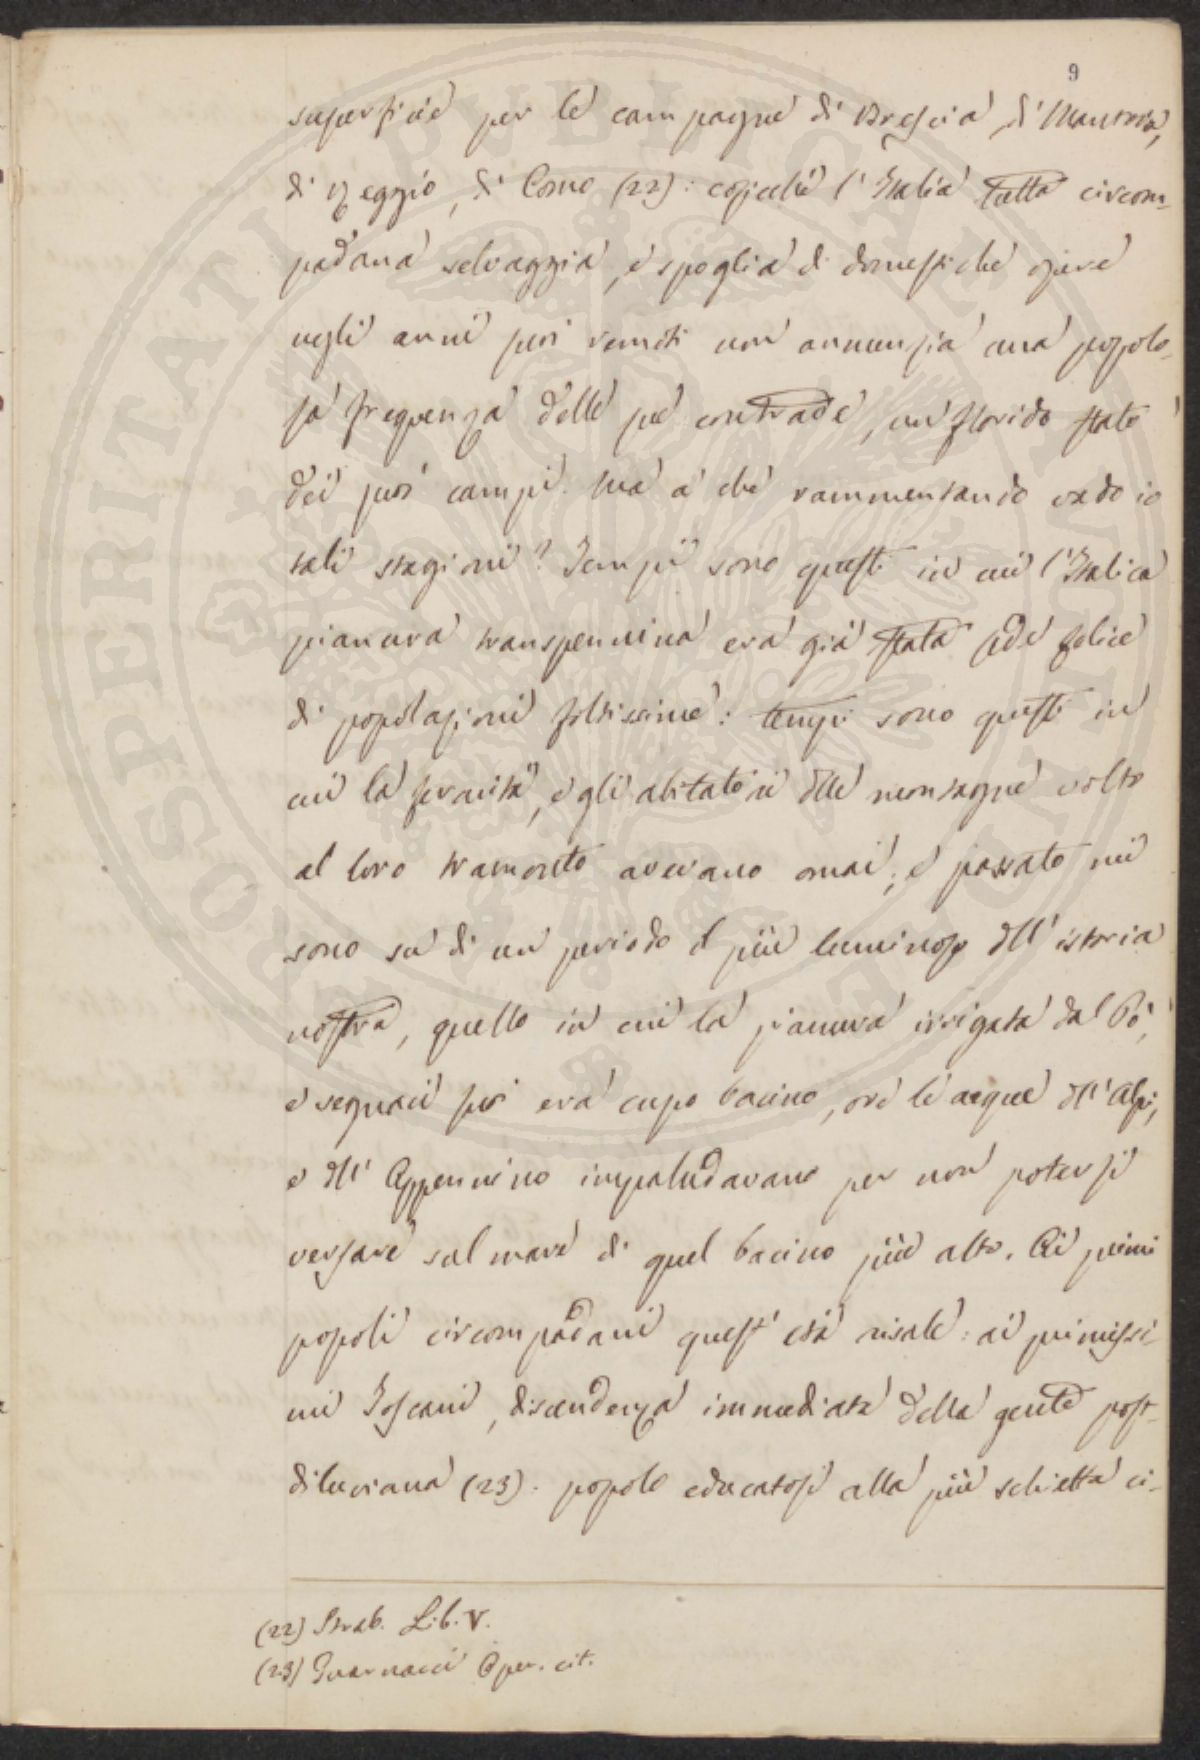 9
superficie per le campagne di Brescia, di Mantova,
di Reggio, di Como (22): cosicchè l'Italia tutta circom-
padana selvaggia, e spoglia di domestiche opere
negli anni suoi remoti non annunzia una popolo-
sa frequenza delle sue contrade, un florido stato
dei suoi campi. Ma a che rammentando vado io
tali stagioni? Tempi sono questi in cui l'Italica
pianura transpennina era già stata sede felice
di popolazioni foltissime: tempi sono questi in
cui la feracità, e gli abitatori delle montagne volto
al loro tramonto avevano omai; e passato mi
sono su di un periodo il più luminoso dell'istoria
nostra, quello in cui la pianura irrigata dal Pò,
e seguaci suoi era cupo bacino, ove le acque dell'Alpi,
e dell'Appennino impaludavano per non potersi
versare sul mare di quel bacino più alto. Ai primi
popoli circompadani quest'età risale: ai primissi-
mi Toscani, discendenza immediata della gente post-
diluviana (23). popolo educatosi alla più schietta ci-
(22) Strab. Lib. V.
(23) Guarnacci Oper. cit.
PROSPERITATI PUBLICAE